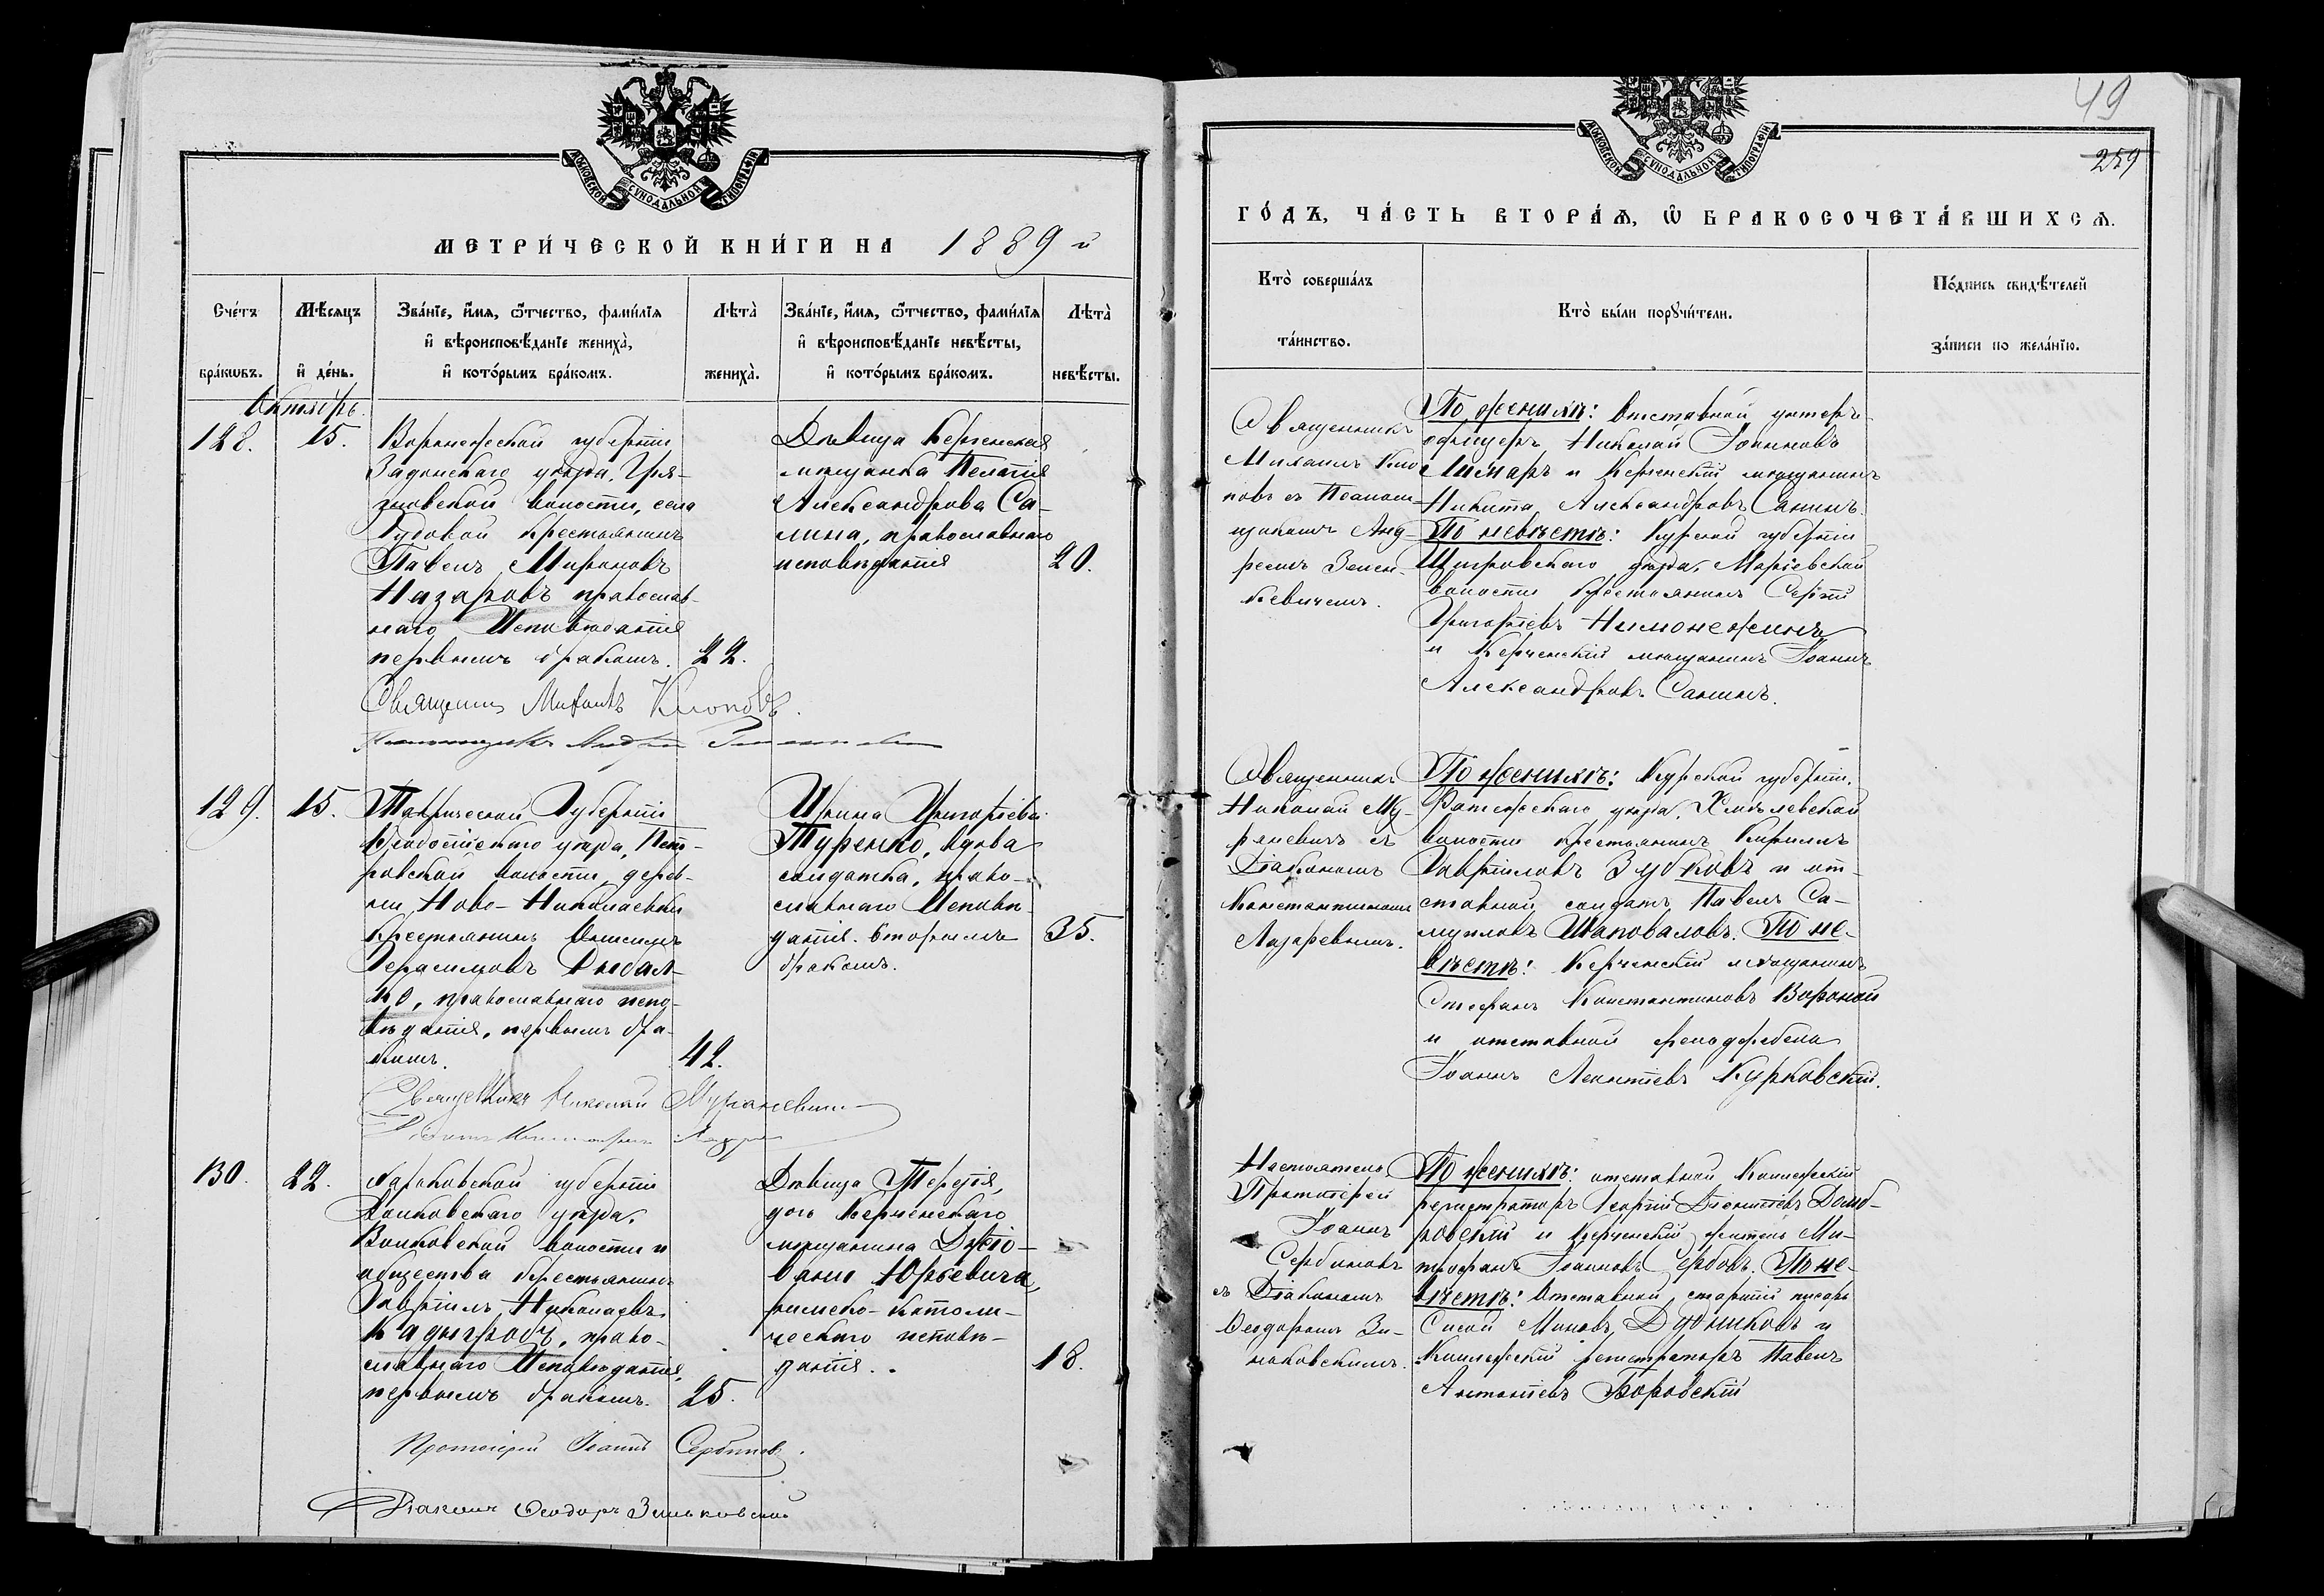 МОСКОВСКОЙ СУНОДАЛЬНОЙ ТИПОГРАФІИ
МЕТРИ́ЧЕСКОЙ КНИ́ГИ НА 1889 й
Сче́тъ бра́кѡвъ.
Мѣ́сяцъ и҆ де́нь.
Зва́нїе, и҆́мѧ, ѻ҆́тчество, фами́лїѧ
и҆ вѣроисповѣ́данїе жениха̀,
и҆ кото́рымъ бра́комъ.
Лѣта̀ жениха̀.
Зва́нїе, и҆́мѧ, ѻ҆́тчество, фами́лїѧ
и҆ вѣроисповѣ́данїе невѣ́сты,
и҆ кото́рымъ бра́комъ.
Лѣта̀ невѣ́сты.
Октябрь.
128.
15.
Воронежской губерніи
Задонскаго уѣзда, Гря-
зновской волости, села
крестьянинъ
Павелъ Мироновъ
Назаровъ православ-
наго Исповѣданія
первымъ бракомъ.
22.
Дѣвица Керченская
мѣщанка Пелагія
Александрова Са-
нина, православнаго
исповѣданія
20.
Священникъ Михаилъ Клоповъ.
129.
15.
Таврической Губерніи
Ѳеодосійскаго уѣзда, Пет-
ровской волости, дерев-
ни Ново-Николаевки
Крестьянинъ
Герасимовъ Дыбал-
ко, православнаго испо-
вѣданія, первымъ бра-
комъ.
42.
Ирина Григоріева
Туренко, вдова
солдатка, право-
славнаго Исповѣ-
данія. вторымъ
бракомъ.
35.
Священникъ Николай Мураневичъ
130.
22.
Харьковской губерніи
Волковскаго уѣзда,
Волковской волости и
общества крестьянинъ
Гавріилъ Николаевъ
Кадыгробъ, право-
славнаго Исповѣданія,
первымъ бракомъ.
25.
Дѣвица Терезія,
дочь Керченскаго
мѣщанина Джіо-
вани Юрьевича,
римско-католи-
ческаго исповѣ-
данія.
18.
Протоіерей Іоаннъ Сербиновъ.
Діаконъ Ѳеодоръ Зиньковскій
49
259
МОСКОВСКОЙ СУНОДАЛЬНОЙ ТИПОГРАФІИ
ГО́ДЪ, ЧА́СТЬ ВТОРА́Ѧ, Ѽ БРАКОСОЧЕТА́ВШИХСѦ.
Кто̀ соверша́лъ
та́инство.
Кто̀ бы́ли порꙋчи́тели.
По́дпись свидѣ́телей
за́писи по жела́нїю.
Священникъ
Михаилъ Кло-
повъ съ Псаломщ-
щикомъ Анд-
реемъ Зелен-
кевичемъ.
По женихѣ: Отставной унтеръ-
офицеръ Николай Іоанновъ
Лимаръ и Керченскій мѣщанинъ
Никита Александровъ Санинъ.
По невѣстѣ: Курской губерніи
Щигровскаго уѣзда, Маріевской
волости Крестьянинъ Сергій
Григоріевъ
и Керченскій мѣщанинъ Іоаннъ
Александровъ Санинъ.
Священникъ
Николай Му-
раневичъ съ
Діакономъ
Константиномъ
Лазаревымъ.
По женихѣ: Курской губерніи,
уѣзда, Хмѣлевской
волости крестьянинъ Кириллъ
Гавріиловъ Зубковъ и от-
ставной солдатъ Павелъ Са-
муиловъ Шаповаловъ. По не-
вѣстѣ: Керченскій мѣщанинъ
Стефанъ Константиновъ Вороной
и отставной фельдфебель
Іоаннъ Леонтіевъ Курковскій.
Настоятель
Протоіерей
Іоаннъ
Сербиновъ
съ Діакономъ
Ѳеодоромъ Зи-
ньковскимъ.
По женихѣ: отставной Коллежскій
регистраторъ Георгій Діонисіевъ Домб-
ровскій и Керченскій житель Ми-
трофанъ Іоанновъ Сербовъ. По не-
вѣстѣ: Отставной старшій писарь
Сисой Миновъ Дудниковъ и
Коллежскій регистраторъ Павелъ
Антоніевъ Боровскій